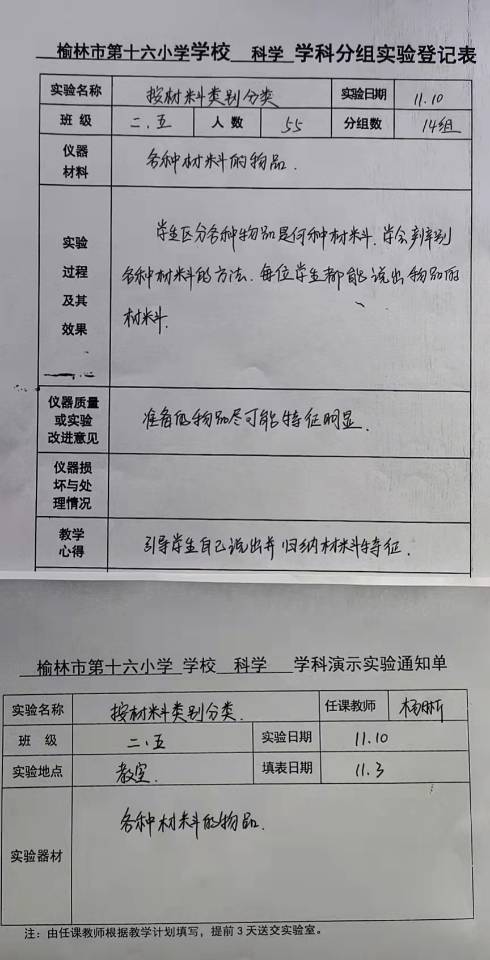 榆林市第十六小学学校 科学 学科分组实验登记表
实验名称 按材料类别分类 实验日期 11.10
班 级 二、五 人 数 55 分组数 14组
仪器
材料
各种材料的物品.
实验
过程
及其
效果
学生区分各种物品是何种材料.学会判辨别
各种材料的方法.每位学生都能说出物品的
材料.
仪器质量
或实验
改进意见
准备的物品尽可能特征明显.
仪器损
坏与处
理情况
教学
心得
引导学生自己说出并归纳材料特征.
榆林市第十六小学 学校 科学 学科演示实验通知单
实验名称 按材料类别分类. 任课教师
班 级 二、五 实验日期 11.10
实验地点 教室. 填表日期 11.3
实验器材 各种材料的物品.
注：由任课教师根据教学计划填写，提前3天送交实验室。